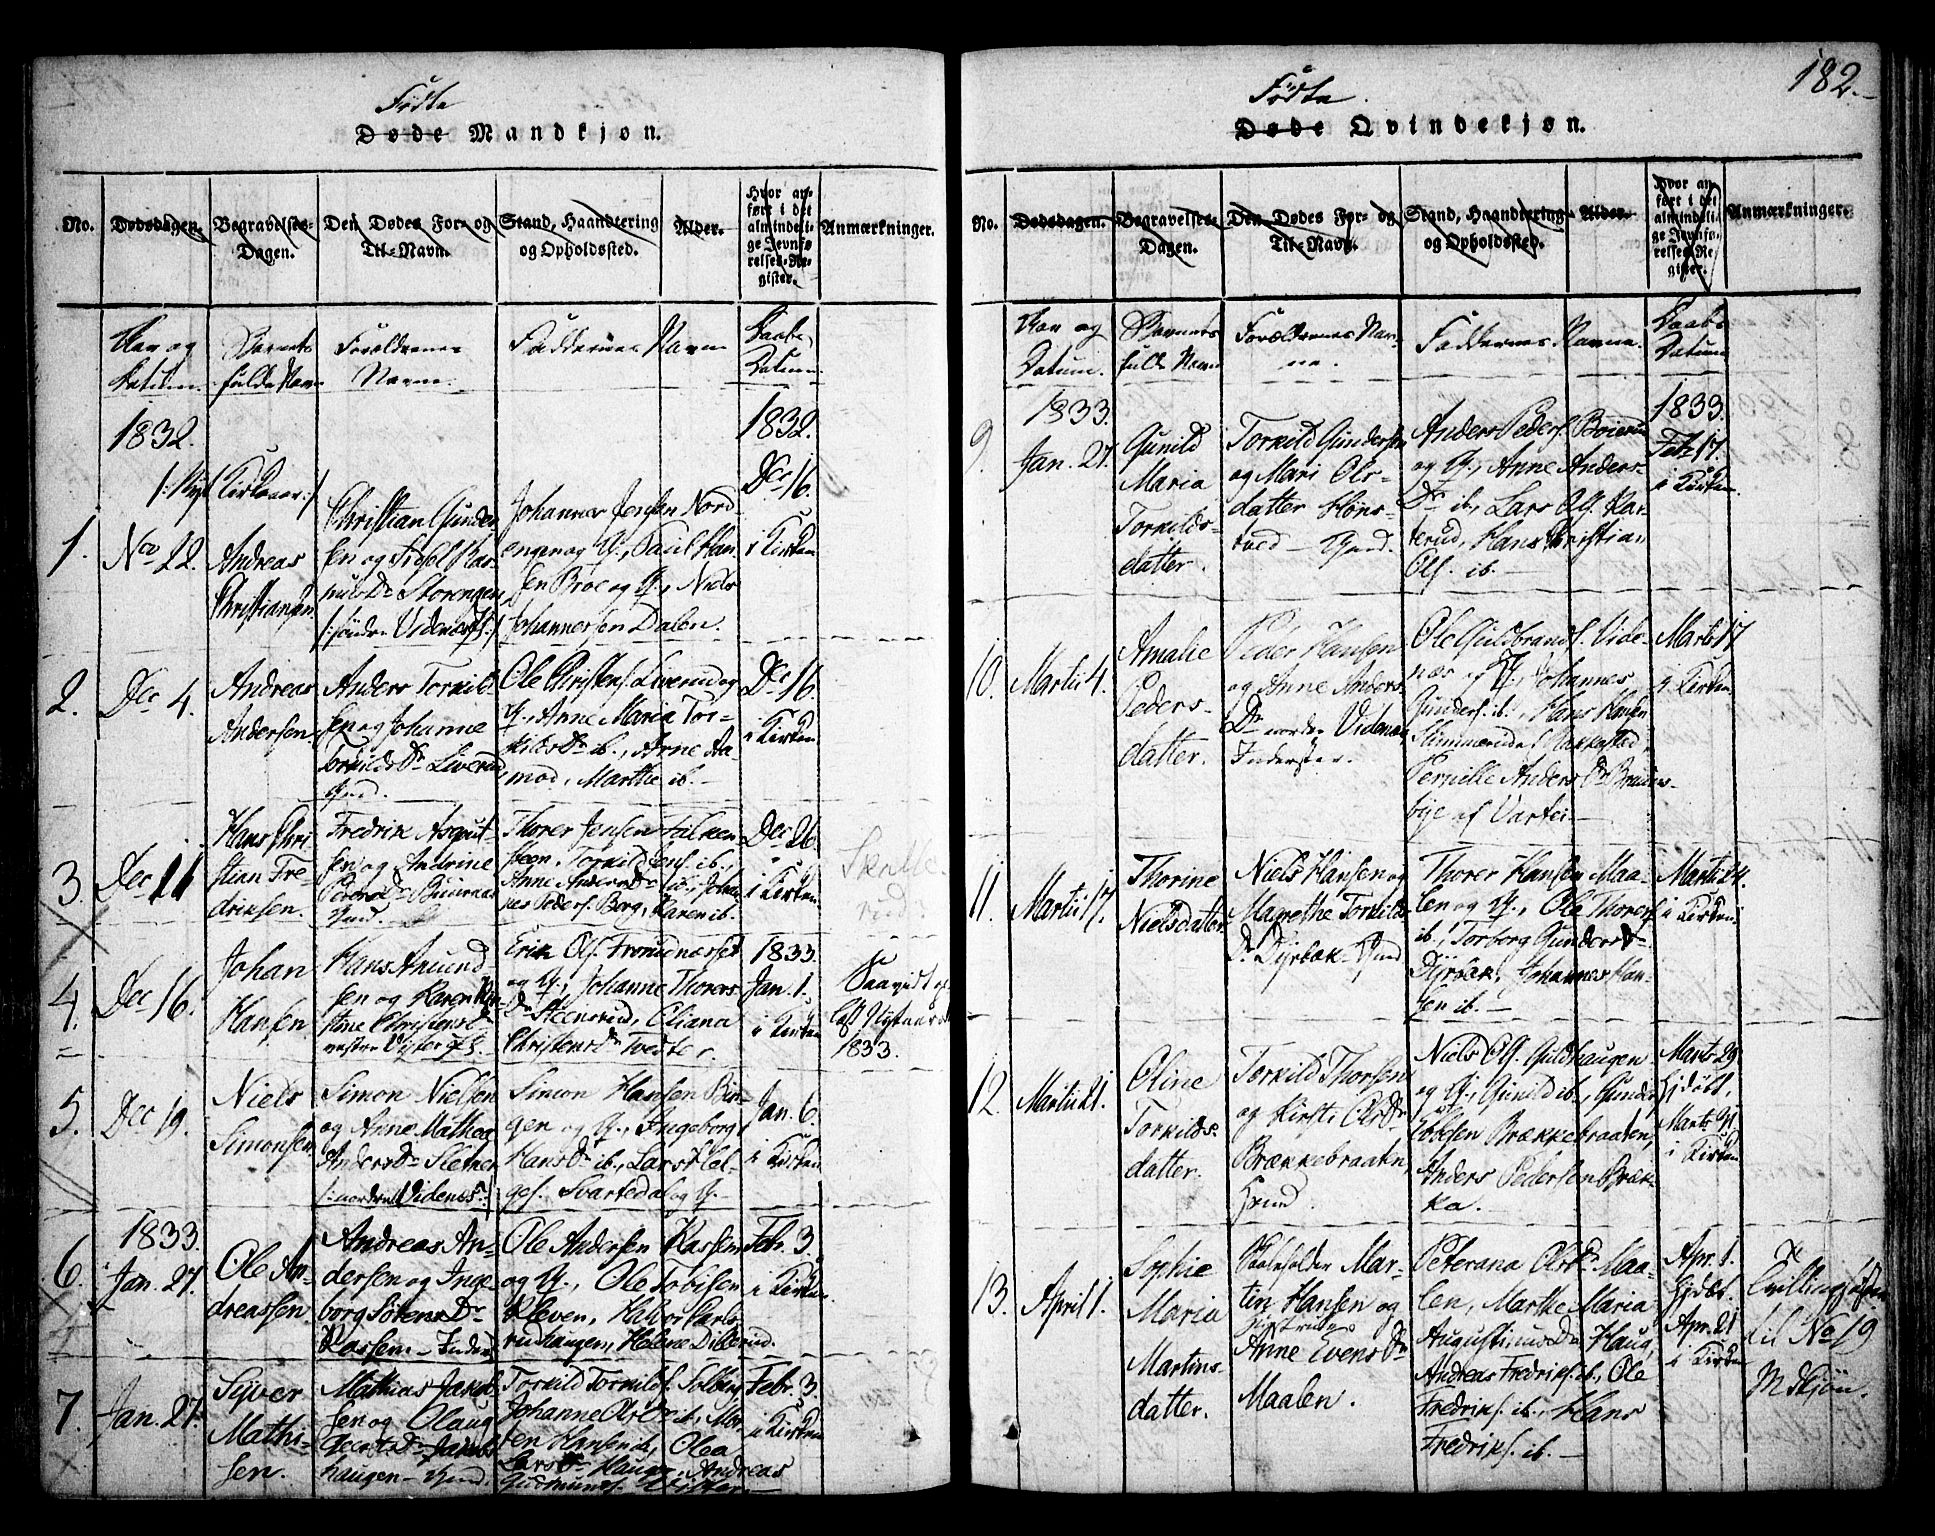 182.
Fødte
Døde Mandkjøn.
No.
Dødsdagen.
Begravelses-
Dagen.
Den Dødes For- og
Til-Navn.
Stand, Haandtering
og Opholdssted.
Alder.
Hvor an-
ført i det
almindeli-
ge Jevnfø-
relses-Re-
gister.
Anmærkninger.
Aar og
Datum.
Barnets
fulde Navn
Forældrenes
Navne.
Faddernes Navne
Daabs
Datum
1832
1832.
1.
Nov 22.
Andreas
Christiansen
Christian Gunder-
sen og Sidsel Ras-
Storengen
/:søndre Videnæs:/
Johannes Jensen Nord-
engen og H., Paul Han-
sen Broe og H., Niels
Johannessen Dalen.
Dec 16.
i Kirken
2.
Dec 4.
Andreas
Andersen
Anders Torkild-
sen og Johanne
Torkilds Dr Liverud
Ole Christens. Liverud og
H., Anne Maria Tor-
kilds Dr ib., Arne Aa-
mod, Marthe ib.
Dec 16.
i Kirken
3.
Dec 11
Hans Chri-
stian Fre-
driksen.
Fredrik Asgut-
sen og Andrine
Peders Dr
Thorer Jensen Falken-
steen, Torkild Jens. ib.,
Anne Anders Dr ib., Johan-
nes Peders. Berg, Karen ib.
Dec 26.
i Kirken
4.
Dec 16.
Johan
Hansen
Hans Amund-
sen og Karen Kir-
stine Christens Dr
Erik Ols.
og H., Johanne Thorers
Dr Steensrud, Eliana
Christens Dr Tvedte.
1833.
Jan. 1.
i Kirken
1833.
5.
Dec 19.
Niels
Simonsen
Simon Nielsen
og Anne Mathea
Anders Dr Sletner
/:nordre Videnæs:/
Simon Hansen Bin-
gen og H., Ingeborg
Hans Dr ib., Lars Hel-
ges. Svartedal og H.
Jan. 6.
i Kirken
1833.
6.
Jan. 27.
Ole An-
dreassen.
Andreas An-
dersen og Inge-
borg Sørens Dr
Rassem
Ole Andersen Rassem
og H., Ole Tobisen
Kleven, Halvor Karls-
rudhaugen, Helene Dillerud.
Febr. 3.
i Kirken
7.
Jan. 27.
Syver
Mathi-
sen.
Mathias Jakob-
sen og Olaug
haugen
Torkild Torkilds. Solberg,
Johanne Ols Dr ib., Mor-
ten Hansen ib., Olea
Lars Dr Haugen, Andreas
Gudmunds. Vister
Febr. 3.
i Kirken
Fødte
Døde Qvindekjøn.
No.
Dødsdagen.
Begravelses-
Dagen.
Den Dødes For- og
Til-Navn.
Stand, Haandtering
og Opholdssted.
Alder.
Hvor an-
ført i det
almindeli-
ge Jevnfø-
relses-Re-
gister.
Anmærkninger.
Aar og
Datum.
Barnets
fulde Navn
Forældrenes Nav-
ne.
Faddernes Navne.
Daabs
Datum
1833.
1833.
9.
Jan. 27.
Gunild
Maria
Torkilds-
datter.
Torkild Gundersen
og Mari Ols-
datter Høns-
tved
Anders Peders. Boierud
og H., Anne Anders-
Dr ib., Lars Ols. Kar-
terud, Hans Christian
Ols. ib.
Feb. 17.
i Kirken.
10.
Martii 4.
Amalie
Peders-
datter.
Peder Hansen
og Anne Anders
Dr nordre Videnæs
Inderster.
Ole Guldbrands. Vide-
næs og H., Johannes
Gunders. ib., Hans Hansen
Slimmerud af Rakkestad,
Pernille Anders Dr Braten-
bye af Varteig
Marti 17
i Kirken
11.
Martii 17.
Thorine
Nielsdatter
Niels Hansen og
Magrethe Torkilds
Dr Dyrbæk
Thorer Hansen Maa-
len og H., Ole Thorers.
ib., Torborg Gunders Dr
Dyrbæk, Johannes Han-
sen ib.
Marti 24.
i Kirken
12.
Martii 21.
Oline
Torkilds-
datter.
Torkild Thorsen
og Kirsti Ols Dr
Brækkebraaten,
Niels Ols. Guldhaugen
og H., Gunild ib., Gunder
Ebbesen Brækkebraaten,
Anders Pedersen Bræk-
ka.
Marts 29.
Hjdøbt,
Marts 31
i Kirken
13.
April 1.
Sophie
Maria
Martins-
datter.
Martin Hansen og
Anne Evens Dr
Maalen
Peterana Ols Dr Maa-
len, Marthe Maria
Augustinus Dr Haug,
Andreas Fredriks. ib., Ole
Fredriks. ib., Hans
Fredriks. ib.
Apr. 1.
Hjdøbt.
Apr. 21
i Kirken
Tvillingsøster
til No 19
M. Kjøn.